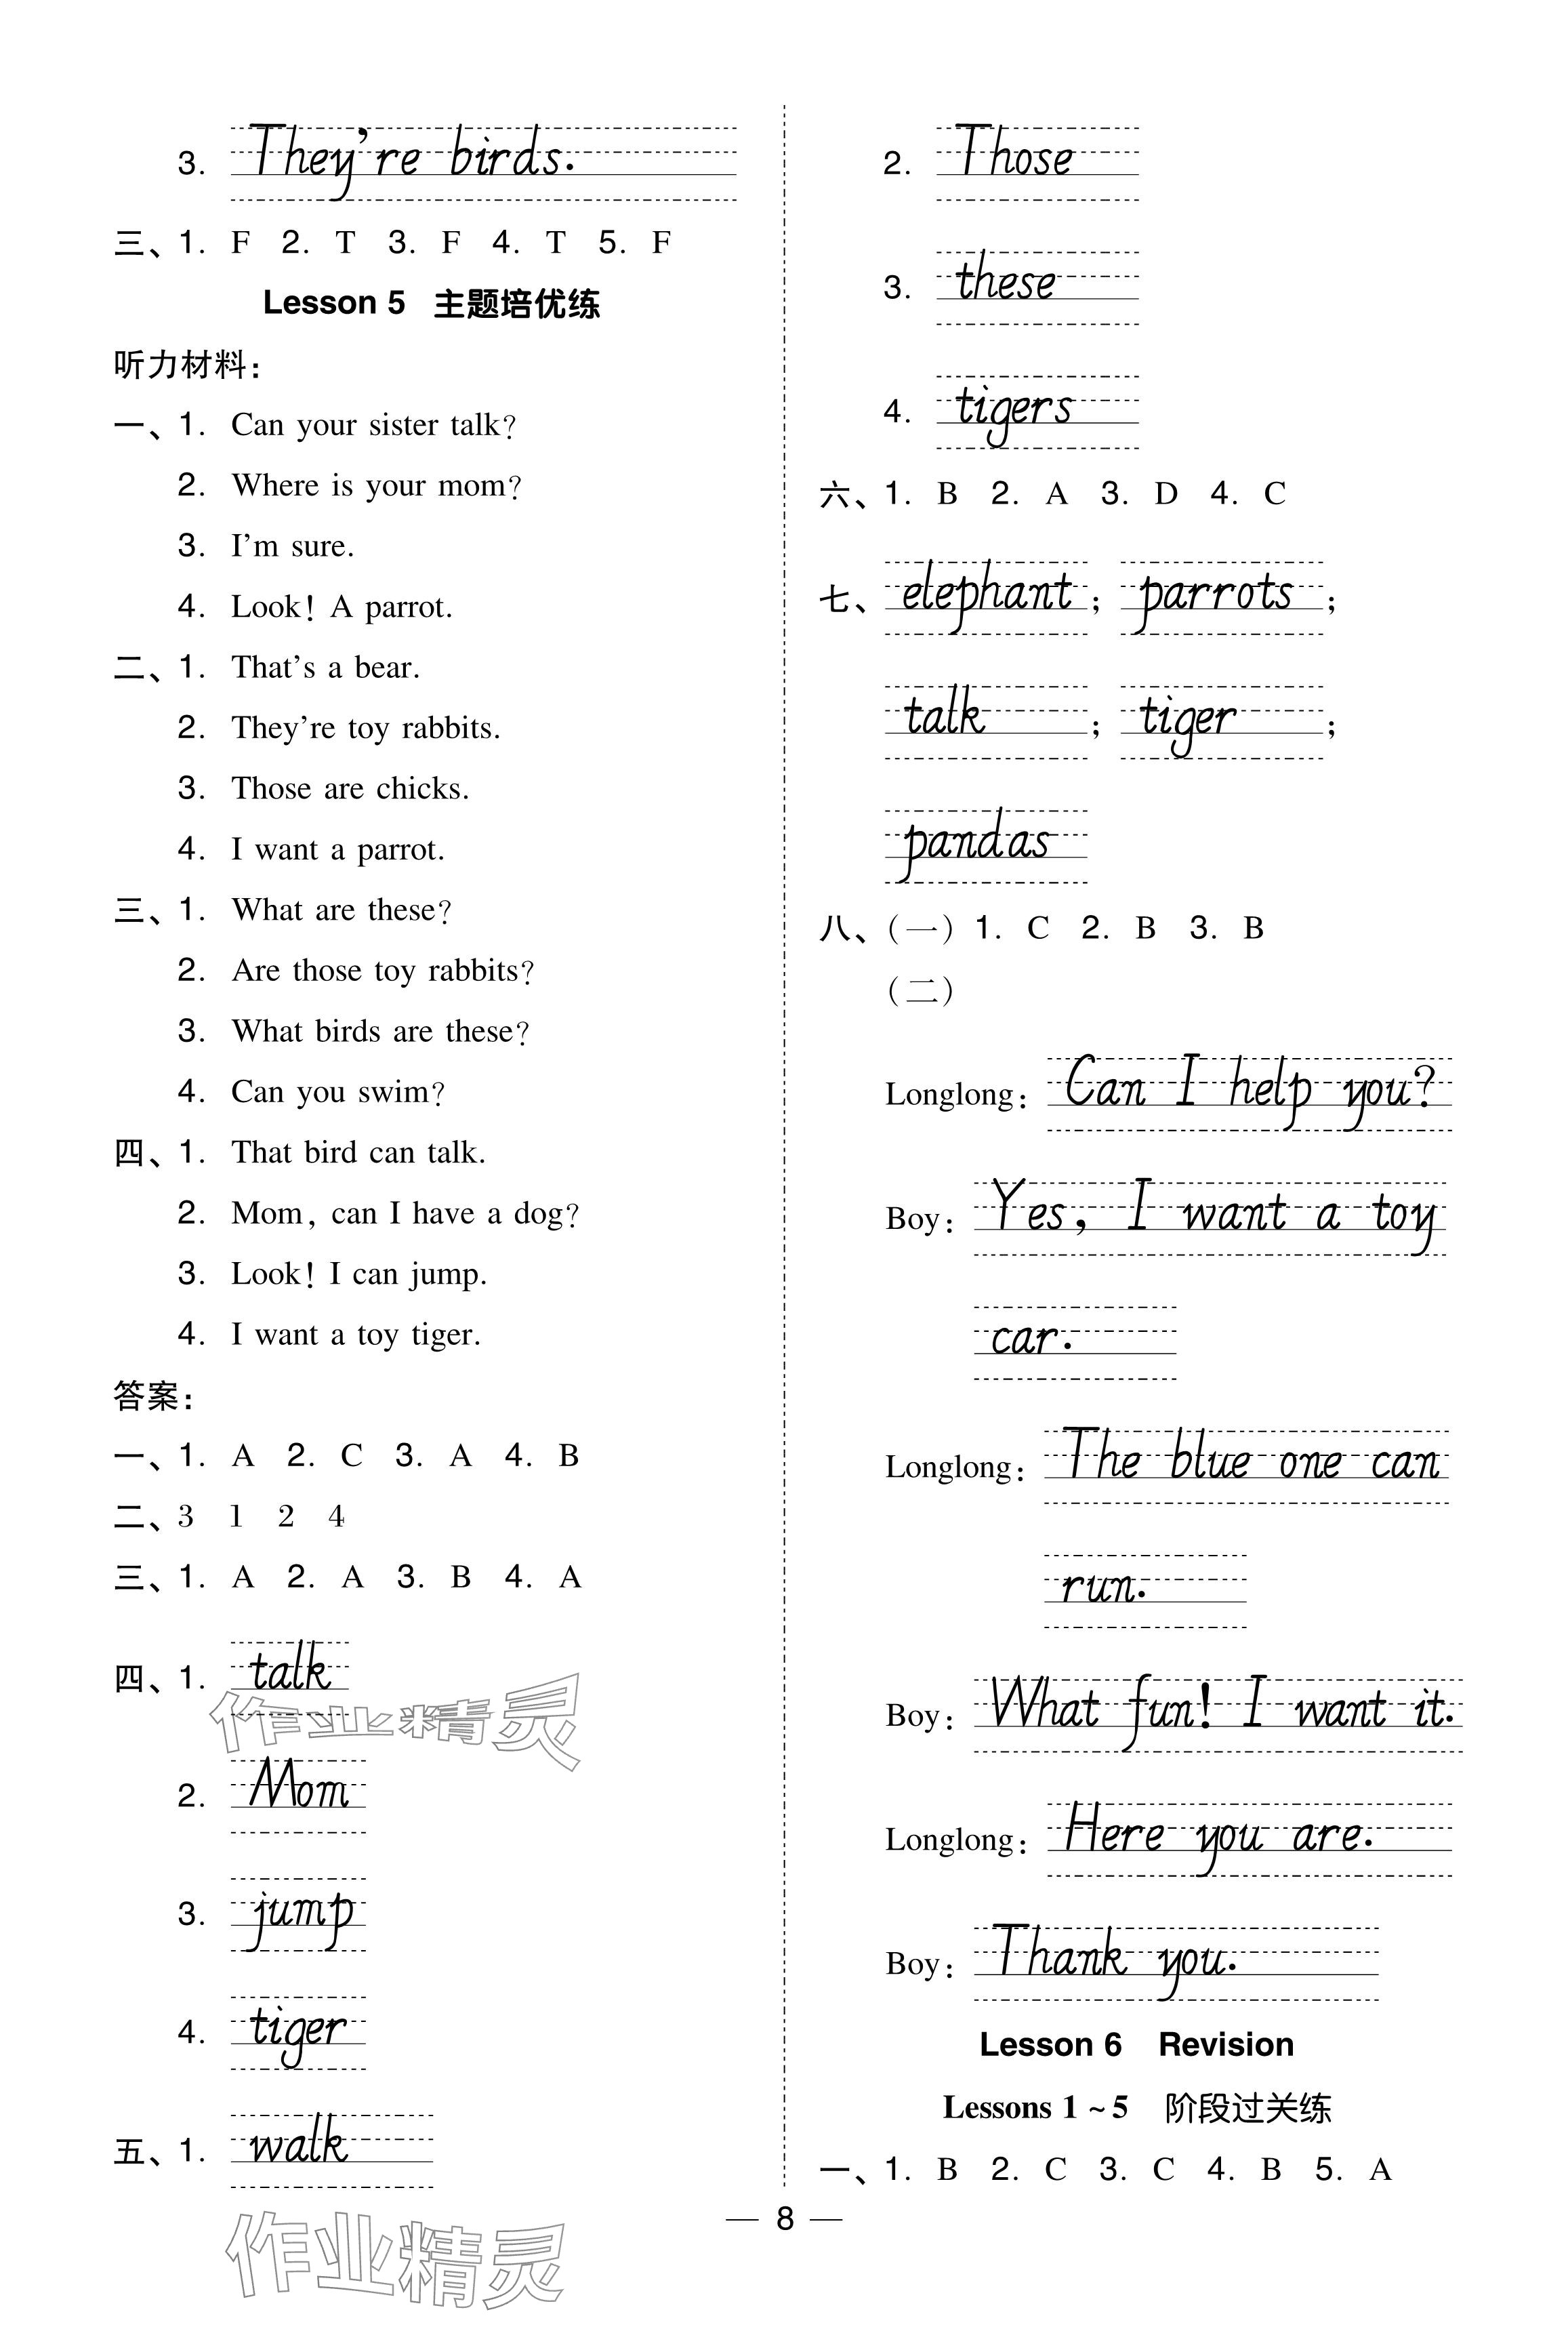 3. They're birds.
三、1. F 2. T 3. F 4. T 5. F
Lesson 5 主题培优练
听力材料：
一、1. Can your sister talk?
2. Where is your mom?
3. I'm sure.
4. Look! A parrot.
二、1. That's a bear.
2. They're toy rabbits.
3. Those are chicks.
4. I want a parrot.
三、1. What are these?
2. Are those toy rabbits?
3. What birds are these?
4. Can you swim?
四、1. That bird can talk.
2. Mom, can I have a dog?
3. Look! I can jump.
4. I want a toy tiger.
答案：
一、1. A 2. C 3. A 4. B
二、3 1 2 4
三、1. A 2. A 3. B 4. A
四、1. talk
2. Mom
3. jump
4. tiger
五、1. walk
2. Those
3. these
4. tigers
六、1. B 2. A 3. D 4. C
七、elephant; parrots;
talk; tiger;
pandas
八、(一) 1. C 2. B 3. B
(二)
Longlong: Can I help you?
Boy: Yes, I want a toy
car.
Longlong: The blue one can
run.
Boy: What fun! I want it.
Longlong: Here you are.
Boy: Thank you.
Lesson 6 Revision
Lessons 1 ~ 5 阶段过关练
一、1. B 2. C 3. C 4. B 5. A
— 8 —
作业精灵
作业精灵